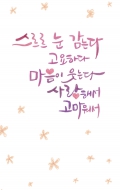 스르르 눈 감는다
고요하다
마음이 웃는다
사랑해서
고마워서